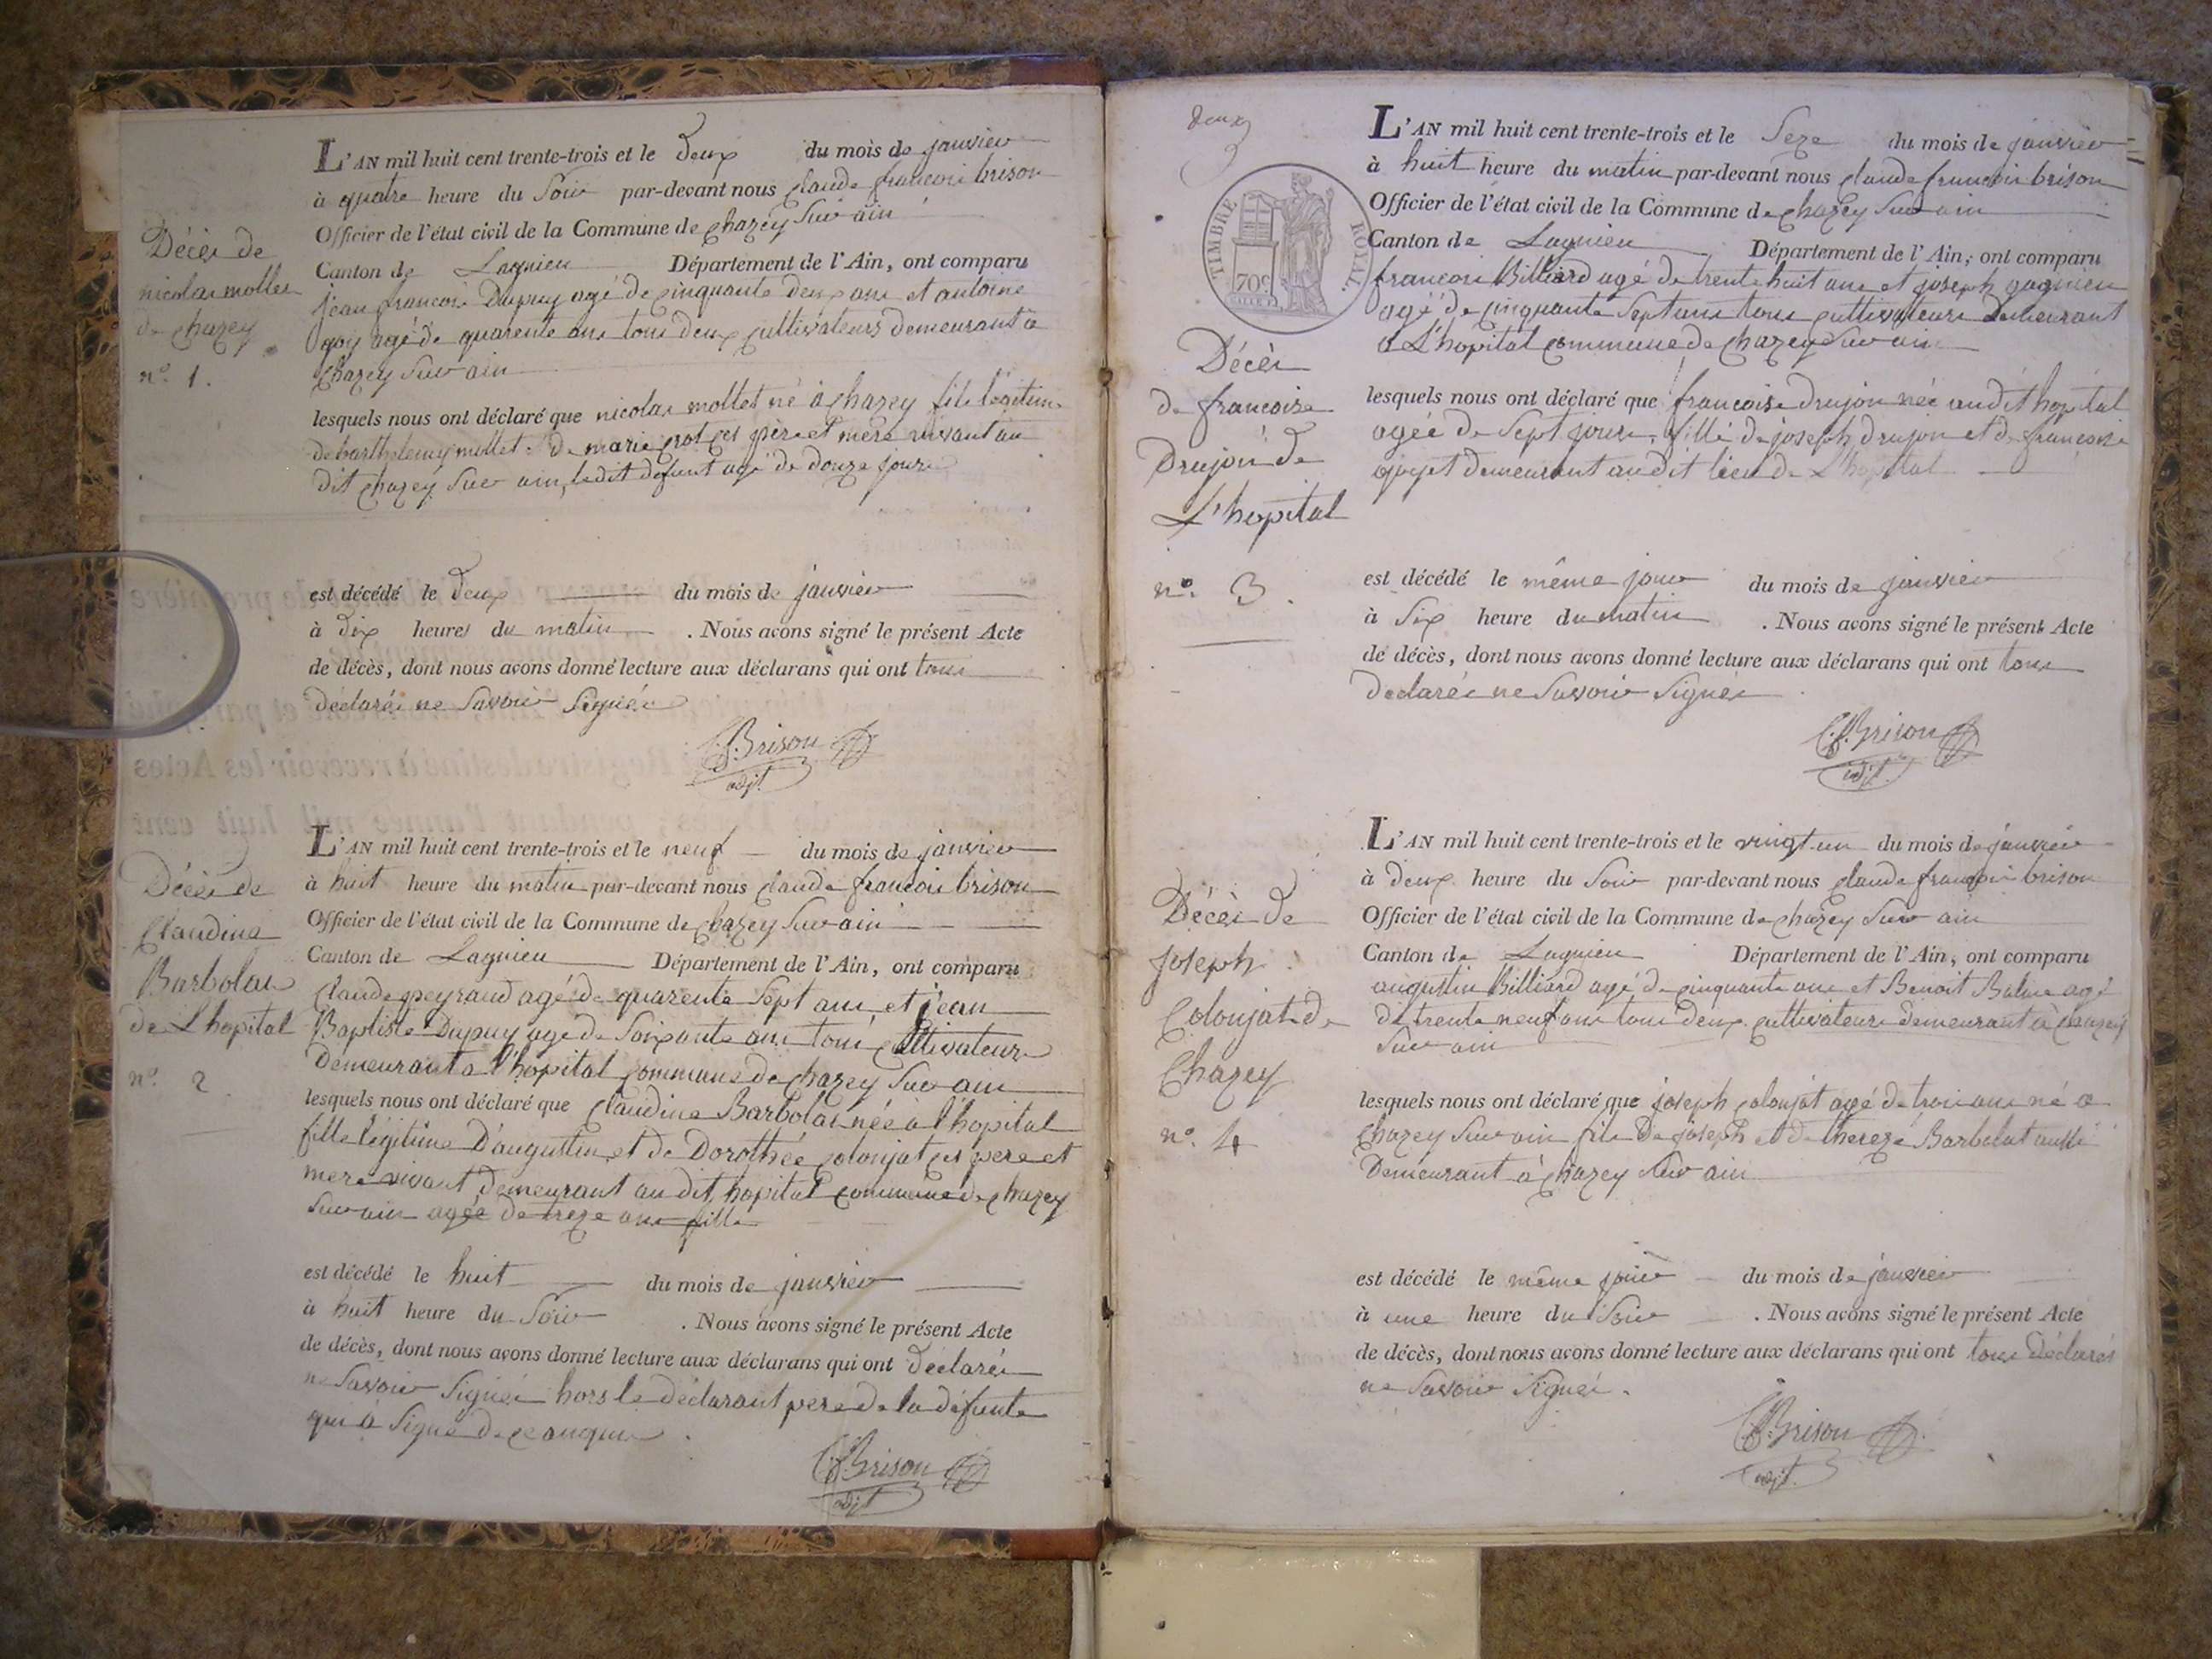 L'AN mil huit cent trente-trois et le deux du mois de janvier
à quatre heure du Soir par-devant nous claude francois brison
Officier de l'état civil de la Commune de chazey Sur ain
Canton de Lagnieu Département de l'Ain, ont comparu
jean francois Dupuy agé de cinquante deux ans et antoine
goy agé de quarente ans tous deux cultivateurs demeurant a
chazey Sur ain
Décès de
nicolas mollet
de chazey
n° 1.
lesquels nous ont déclaré que nicolas mollet né à chazey fils légitime
de barthelemy mollet de marie ces père et mère vivant au
dit chazey Sur ain, ledit défunt agé de douze jours
est décédé le deux du mois de janvier
à dix heures du matin . Nous avons signé le présent Acte
de décès, dont nous avons donné lecture aux déclarans qui ont tous
declarés ne Savoir Signés
C.f. Brison
adjt
L'AN mil huit cent trente-trois et le neuf du mois de janvier
à huit heure du matin par-devant nous claude francois brison
Officier de l'état civil de la Commune de chazey Sur ain
Canton de Lagnieu Département de l'Ain, ont comparu
claude peyraud agé de quarente Sept ans et jean
Baptiste Dupuy agé de Soixante ans tous cultivateurs
Demeurant a l'hopital commune de chazey Sur ain
Décès de
Claudine
Barbolat
de L'hopital
n° 2
lesquels nous ont déclaré que Claudine Barbolat née a l'hopital
fille légitime D'augustin et de Dorothée colonjat ces pere et
mere vivant demeurant au dit hopital commune de chazey
Sur ain agée de treze ans fille
est décédé le huit du mois de janvier
à huit heure du Soir . Nous avons signé le présent Acte
de décès, dont nous avons donné lecture aux déclarans qui ont déclarés
ne Savoir Signés hors le déclarant pere de la défunte
qui a Signé de ce
C.f. Brison
adjt
deux
TIMBRE ROYAL.
70c
L'AN mil huit cent trente-trois et le Seze du mois de janvier
à huit heure du matin par-devant nous claude francois brison
Officier de l'état civil de la Commune de chazey Sur ain
Canton de Lagnieu Département de l'Ain, ont comparu
francois Billiard agé de trente huit ans et joseph gagnieu
agé de cinquante Sept ans tous cultivateurs Demeurant
a L'hopital commune de chazey Sur ain
Décès
de francoise
Drujon de
L'hopital
n° 3.
lesquels nous ont déclaré que francoise drujon née audit hopital
agée de Sept jours, fille de joseph drujon et de francoise
demeurant au dit lieu de L'hopital
est décédé le même jour du mois de janvier
à Six heure du matin . Nous avons signé le présent Acte
de décès, dont nous avons donné lecture aux déclarans qui ont tous
declarés ne Savoir Signés
C.f. Brison
adjt
L'AN mil huit cent trente-trois et le vingt-un du mois de janvier
à deux heure du Soir par-devant nous claude francois brison
Officier de l'état civil de la Commune de chazey Sur ain
Canton de Lagnieu Département de l'Ain, ont comparu
augustin Billiard agé de cinquante ans et Benoit Balme agé
de trente neuf ans tous deux cultivateurs demeurant à chazey
Sur ain
Décès de
joseph
Colonjat de
Chazey
n° 4
lesquels nous ont déclaré que joseph colonjat agé de trois ans né a
chazey Sur ain fils De joseph et de thereze Barbolat aussi
Demeurant à chazey Sur ain
est décédé le même jour du mois de janvier
à une heure du Soir . Nous avons signé le présent Acte
de décès, dont nous avons donné lecture aux déclarans qui ont tous déclarés
ne Savoir Signés.
C.f. Brison
adjt.